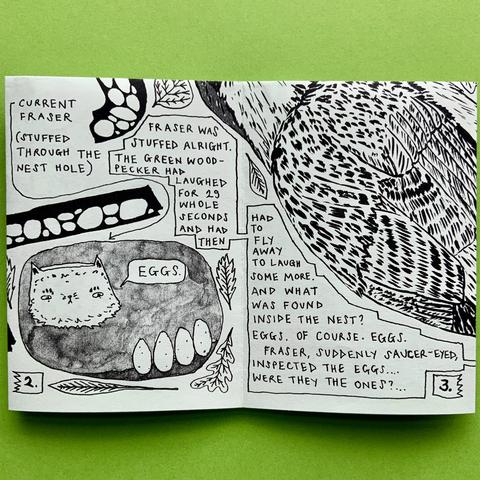 CURRENT
FRASER
(STUFFED
THROUGH THE
NEST HOLE)
FRASER WAS
STUFFED ALRIGHT.
THE GREEN WOOD-
PECKER HAD
LAUGHED
FOR 29
WHOLE
SECONDS
AND HAD
THEN
EGGS.
2.
HAD
TO
FLY
AWAY
TO LAUGH
SOME MORE.
AND WHAT
WAS FOUND
INSIDE THE NEST?
EGGS. OF COURSE. EGGS.
FRASER, SUDDENLY SAUCER-EYED,
INSPECTED THE EGGS....
WERE THEY THE ONES?...
3.